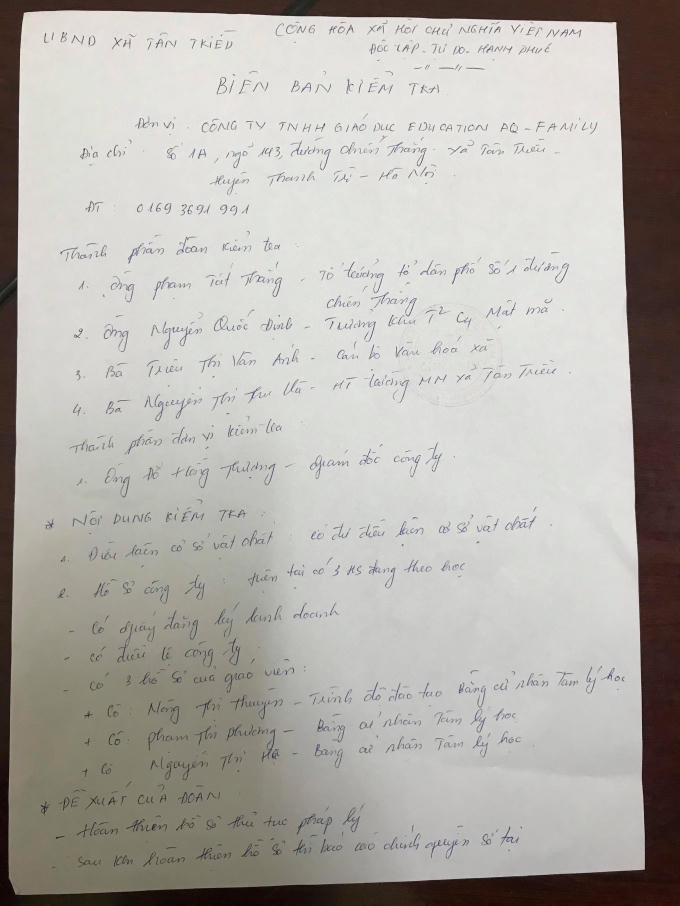 UBND XÃ TÂN TRIỀU
CỘNG HÒA XÃ HỘI CHỦ NGHĨA VIỆT NAM
ĐỘC LẬP - TỰ DO - HẠNH PHÚC
BIÊN BẢN KIỂM TRA
Đơn vị : CÔNG TY TNHH GIÁO DỤC EDUCATION AQ - FAMILY
Địa chỉ : Số 1A, ngõ 143, đường chiến thắng - xã Tân Triều -
Huyện Thanh Trì - Hà Nội
ĐT : 0169 3691 991
Thành phần đoàn kiểm tra :
1. Ông Phạm Tất Thắng - Tổ trưởng tổ dân phố số 1 đường
chiến thắng
2. Ông Nguyễn Quốc Định - Trưởng khu T² Cy Mật mã .
3. Bà Triệu Thị Vân Anh - Cán bộ văn hoá xã
4. Bà Nguyễn Thị Thu Hà - HT trường MN xã Tân Triều .
Thành phần đơn vị kiểm tra
1. Ông Đỗ Hồng Thượng - giám đốc công ty .
* NỘI DUNG KIỂM TRA :
1. Điều kiện cơ sở vật chất : có đủ điều kiện cơ sở vật chất .
2. Hồ sơ công ty : hiện tại có 3 HS đang theo học
- Có giấy đăng ký kinh doanh
- có điều lệ công ty .
- có 3 hồ sơ của giáo viên :
+ Cô : Nông Thị Thuyên - Trình độ đào tạo Bằng cử nhân Tâm lý học
+ Cô : Phạm Thị Phương - Bằng cử nhân Tâm lý học
+ Cô Nguyễn Thị Hà - Bằng cử nhân Tâm lý học .
* ĐỀ XUẤT CỦA ĐOÀN :
- Hoàn thiện hồ sơ thủ tục pháp lý
- Sau khi hoàn thiện hồ sơ thì báo cáo chính quyền sở tại